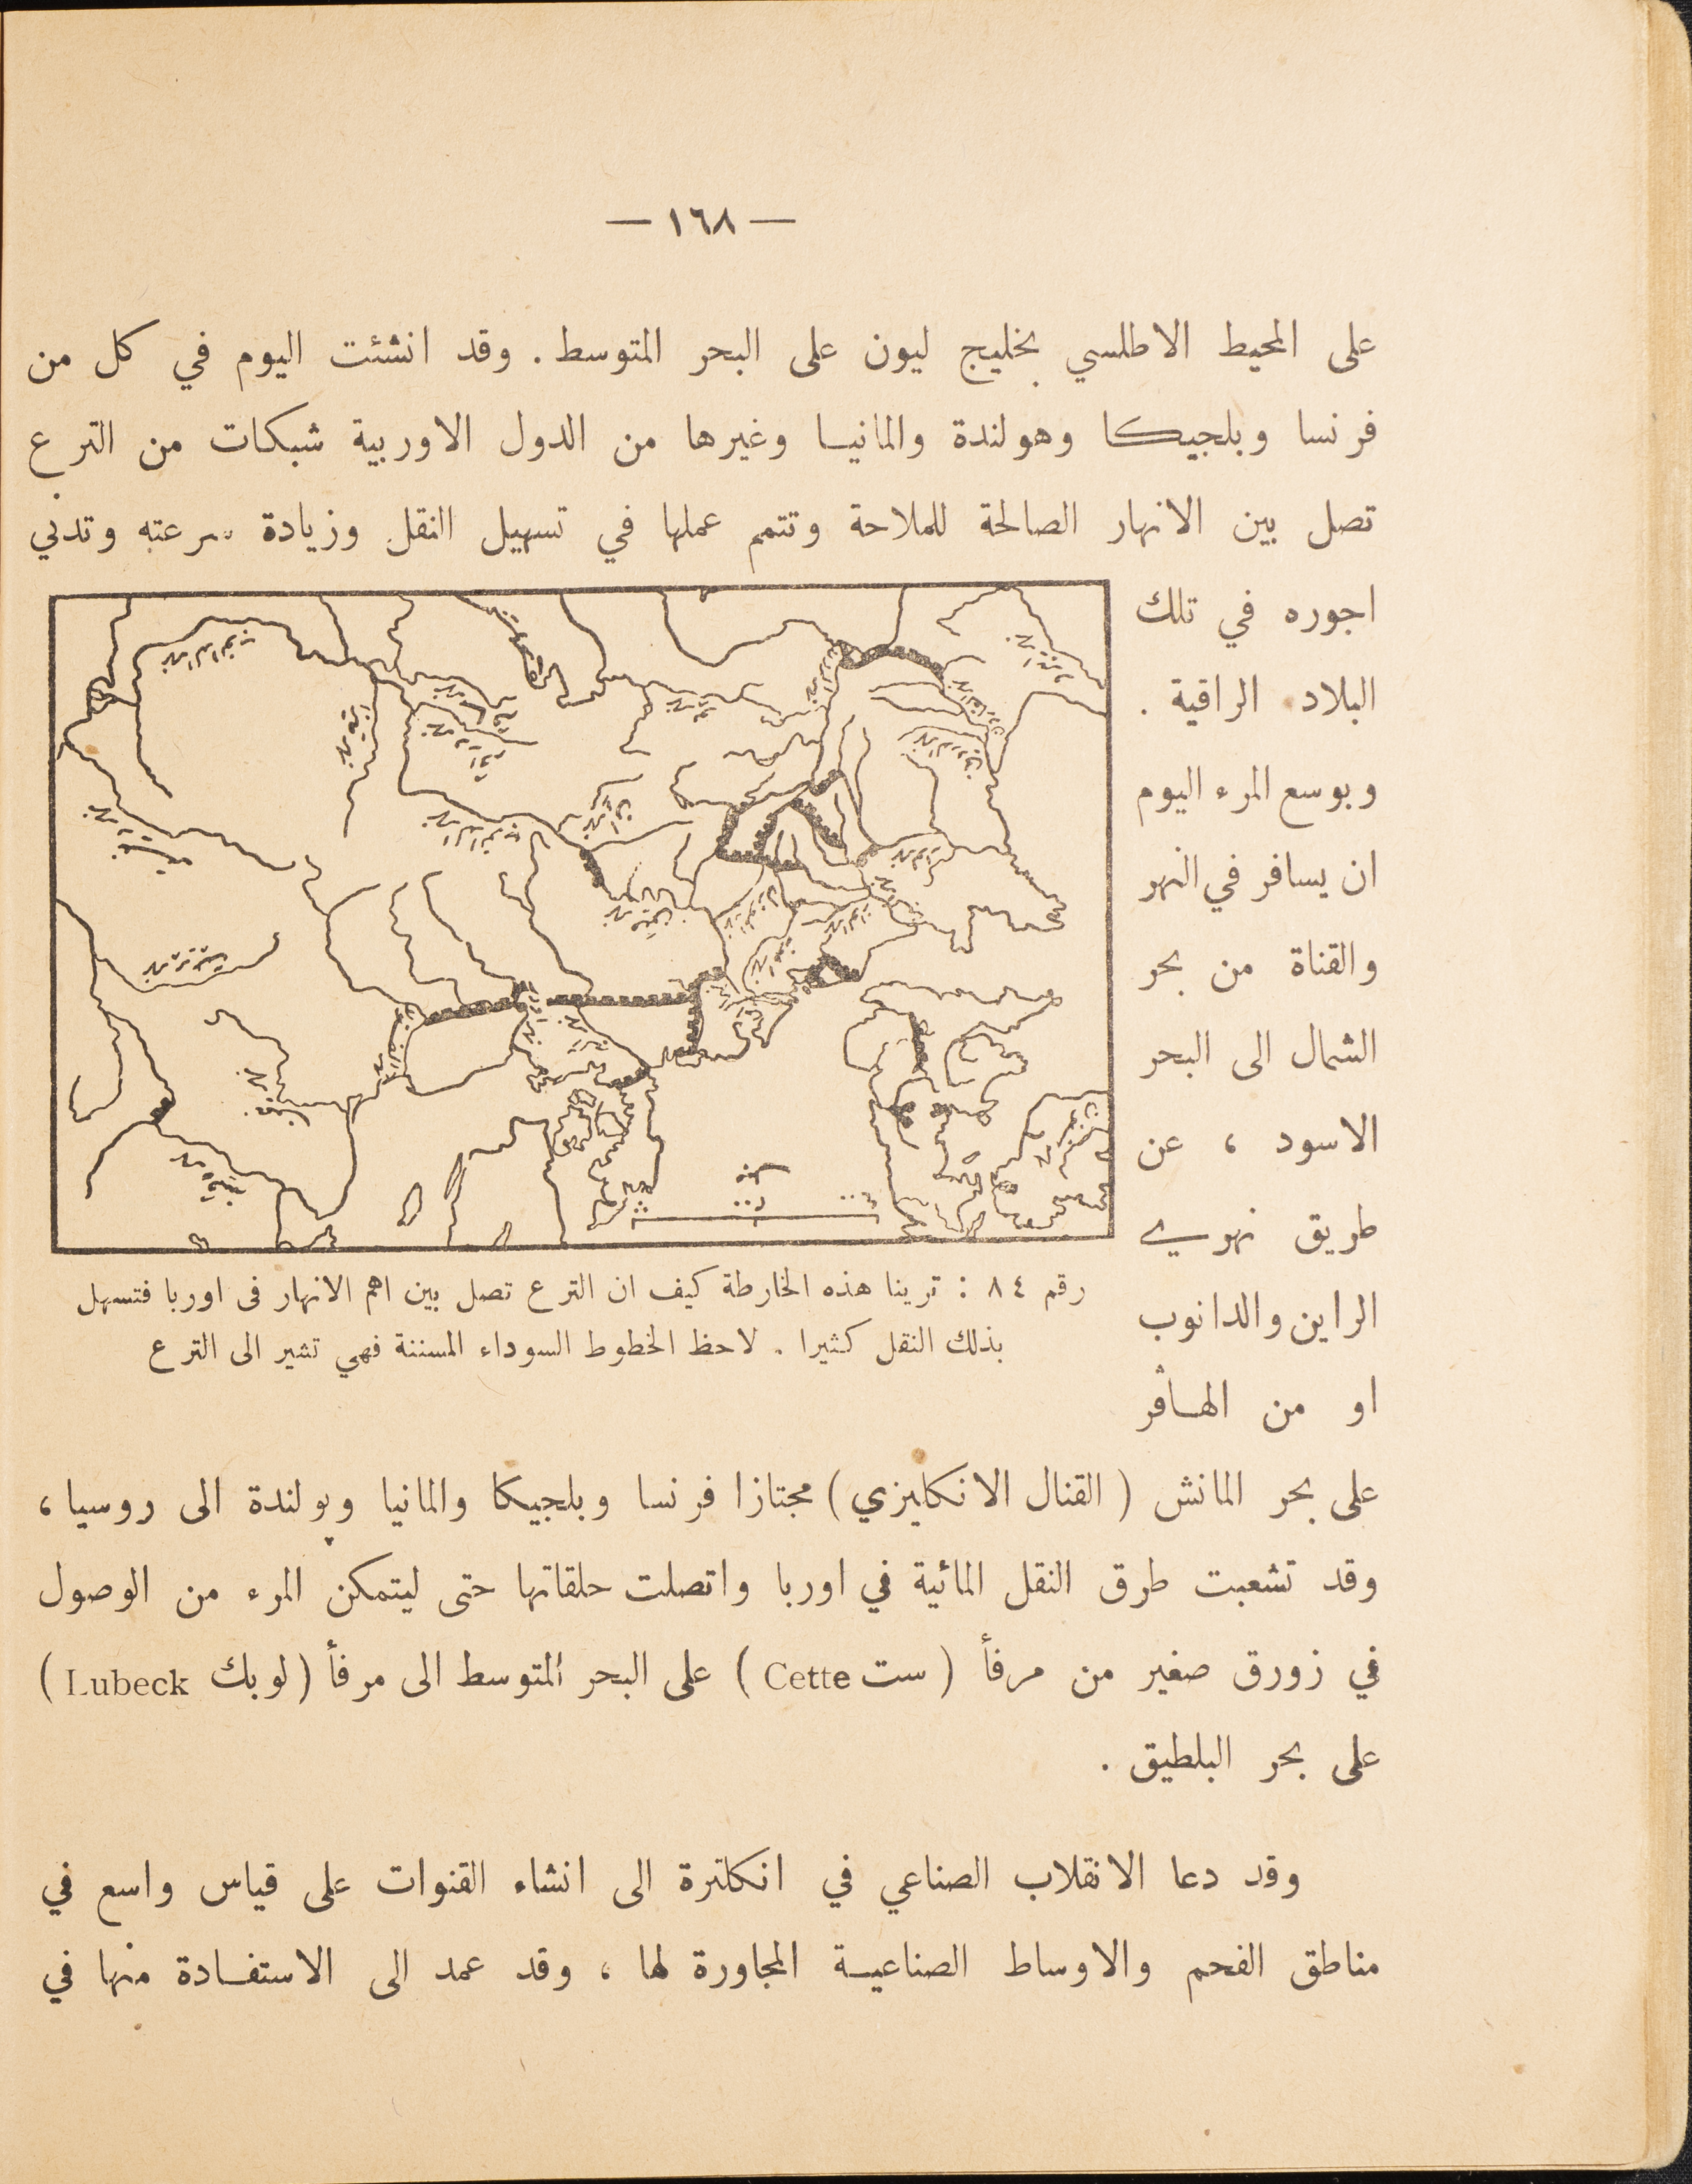 — ١٦٨ —
على المحيط الاطلسي بخليج ليون على البحر المتوسط . وقد انشئت اليوم في كل من
فرنسا وبلجيكا وهولندة والمانيا وغيرها من الدول الاوربية شبكات من الترع
تصل بين الانهار الصالحة للملاحة وتتمم عملها في تسهيل النقل وزيادة سرعته وتدني
اجوره في تلك
البلاد الراقية .
وبوسع المرء اليوم
ان يسافر في النهر
والقناة من بحر
الشمال الى البحر
الاسود ، عن
طريق نهري
الراين والدانوب
او من الهافر
رقم ٨٤ : ترينا هذه الخارطة كيف ان الترع تصل بين اهم الانهار في اوربا فتسهل
بذلك النقل كثيرا . لاحظ الخطوط السوداء المسننة فهي تشير الى الترع
على بحر المانش ( القنال الانكليزي ) مجتازا فرنسا وبلجيكا والمانيا وبولندة الى روسيا ،
وقد تشعبت طرق النقل المائية في اوربا واتصلت حلقاتها حتى ليتمكن المرء من الوصول
في زورق صغير من مرفأ ( ست Cette ) على البحر المتوسط الى مرفأ ( لوبك Lubeck )
على بحر البلطيق .
وقد دعا الانقلاب الصناعي في انكلترة الى انشاء القنوات على قياس واسع في
مناطق الفحم والاوساط الصناعية المجاورة لها ، وقد عمد الى الاستفادة منها في